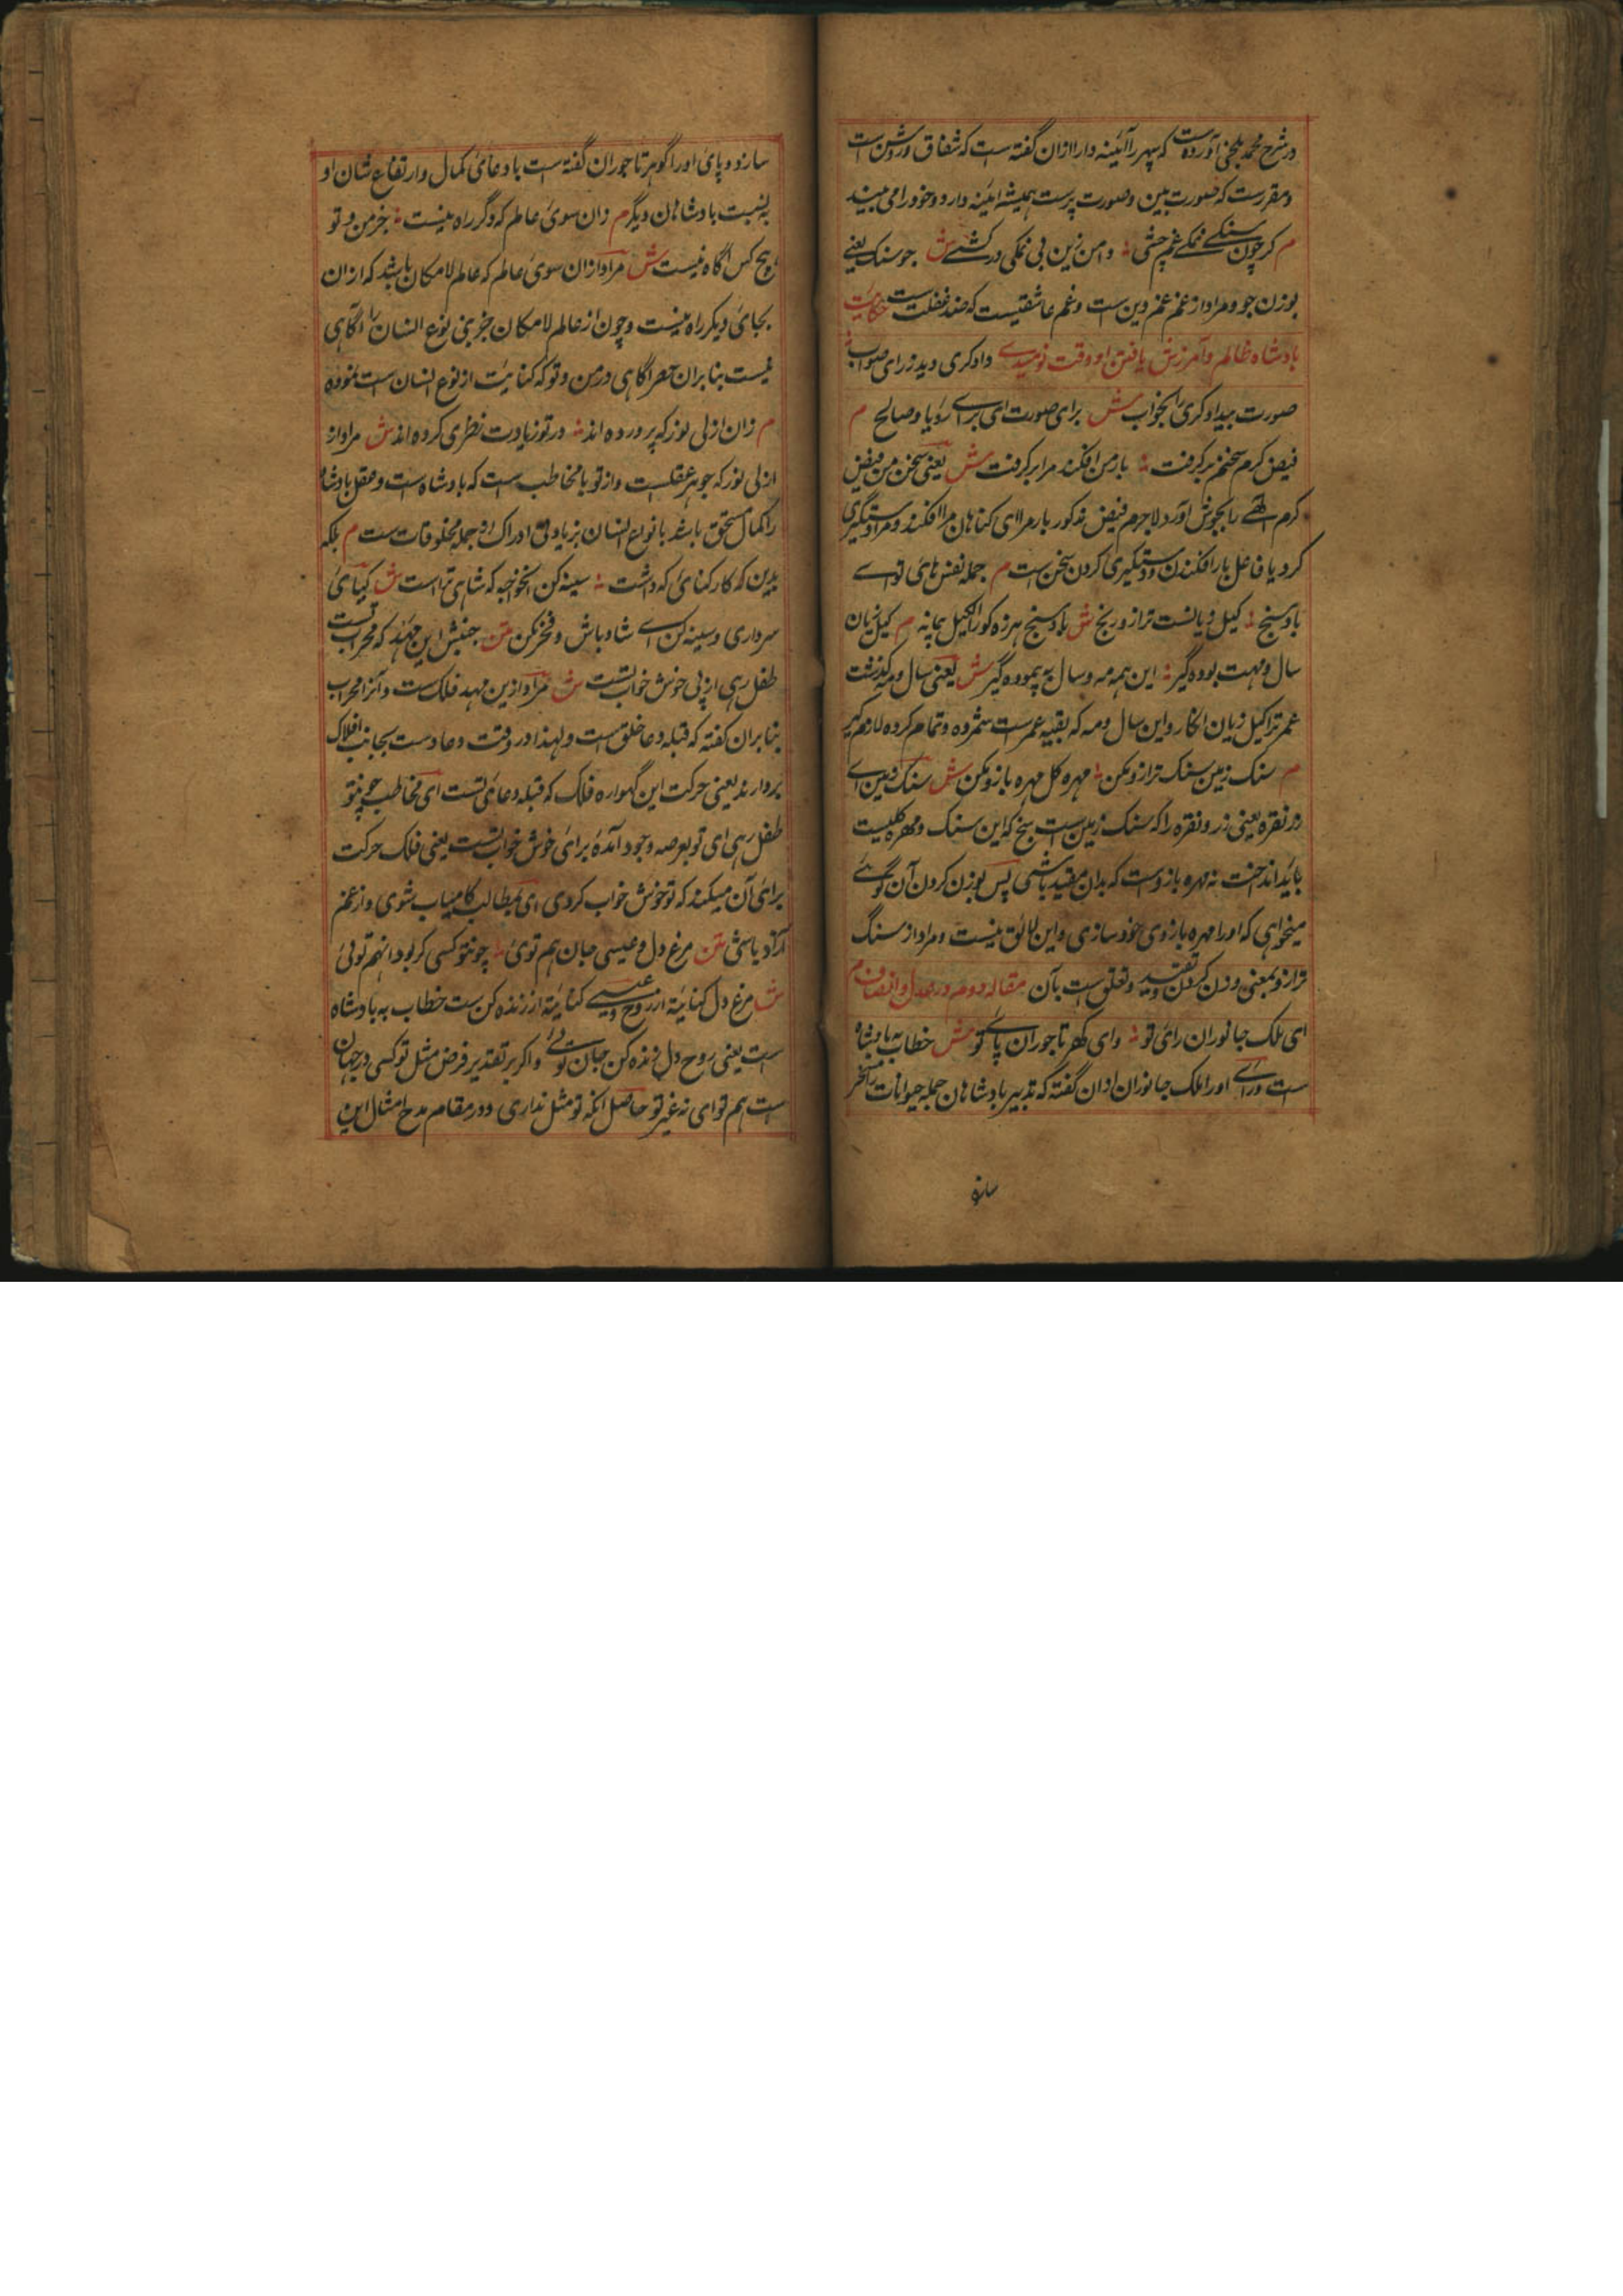 در شرح محمد بلخی آورده است که سپهر را آئینه دار ازان گفته است که شفاف و روشن است
و مقررست که صورت بین و صورت پرست همیشه آئینه دارد و خود را می بیند
م کر چون سنکے نمکے غم چشی ؞ دامن زین بی نمکی در کشے ش جو سنک یعنے
بوزن جو و مراد از غم غم دین ست و غم عاشقیست که ضد غفلت ست حکایت
بادشاه ظالم و آمرزش یافتن او وقت نومیدے دادکری دید ز رای صواب ؞
صورت بیدادکری را بخواب ش برای صورت ای براے رؤیا و صالح م
فیض کرم سخنم بر کرفت ؞ بار من افکند مرا بر کرفت ش یعنی سخن من فیض
کرم الٰهے را بجوش آورد لاجرم فیض مذکور بار مرا ای کناهان مرا افکند و مرا دستگیری
کرد یا فاعل بار افکندن و دستگیری کردن سخن ست م جمله نفس های تو اے
باد سنج ؞ کیل زیانست ترازو رنج ش باد سنج هرزه کو را کیل پیمانه م کیل زیان
سال و مهت بوده گیر ؞ این همه مه و سال به پیموده گیر ش یعنی سال و مه کذشت
عمر ترا کیل زیان انکار و این سال و مه که بقیه عمرست شمرده و تمام کرده لازم گیر
م سنک زمین سنک ترازو مکن ؞ مهره کل مهره بازو مکن ش سنک زمین اے
زر نقره یعنی زر و نقره را که سنک زمین ست بسنج که این سنک و مهره کلیست
باید انداخت نه مهره بازوست که بدان مقید باشی پس بوزن کردن آن گوئے
میخواهی که او را مهره بازوی خود سازی و این لائق نیست و مراد از سنگ
ترازو بمعنی وزن کردن و تقید و تعلق ست بآن مقاله دوم در عدل و انصاف م
ای ملک جانوران رای تو ؞ وای کهر تاجوران پاے تو ش خطاب به بادشاه
ست وراے او را ملک جانوران ازان گفته که تدبیر بادشاهان جمله حیوانات را مسخر
سازد
سازد و پای او را گوهر تاجوران گفته ست بادعای کمال و ارتفاع شان او
به نسبت بادشاهان دیگر م زان سوی عالم که دگر راه نیست ؞ جز من و تو
هیچ کس آگاه نیست ش مراد ازان سوی عالم که عالم لامکان باشد که از ان
بجای دیکر راه نیست و چون از عالم لامکان جز بنی نوع انسان را آگاهی
نیست بنابران حصر آگاهی در من و تو که کنایت از نوع انسان ست نموده
م زان ازلی نور که پرورده اند ؞ در تو زیادت نظری کرده اند ش مراد از
ازلی نور که جوهر عقلست و از تو با مخاطب ست که بادشاه ست و عقل بادشاه
را کمال مستحق باشد با نواع انسان بزیادتی ادراک از جمله مخلوقات ست م بلکه
بدین که کار کنای که داشت ؞ سینه کن انخواجه که شاهی تراست ش کیای
سرداری و سینه کن اے شاد باش و فخر کن متن جنبش این مهد که محراب تست
طفل رهی از پی خوش خواب تست ش مراد ازین مهد فلک ست و آنرا محراب
بنابران گفته که قبله دعا خلق ست و لهذا در وقت دعا دست بجانب افلاک
بردارند یعنی حرکت این گهواره فلک که قبله دعای تست ای مخاطب چو بنتو
طفل رهی ای تو بعرصه وجود آمدهٔ برای خوش خواب تست یعنی فلک حرکت
برای آن میکند که تو خوش خواب کردی ای بمطالب کامیاب شوی و از غم
آزاد باشی متن مرغ دل و عیسی جان هم توی ؞ چونتو کسی کر بود آنهم توئی
ش مرغ دل کنایتۀ از روح و عیسے کنایتۀ از زنده کن ست خطاب به بادشاه
ست یعنی روح دل زنده کن جان توئے و اکر بر تقدیر فرض مثل تو کسی در جهان
ست هم تو ای نه غیر تو حاصل آنکه تو مثل نداری و در مقام مدح امثال این